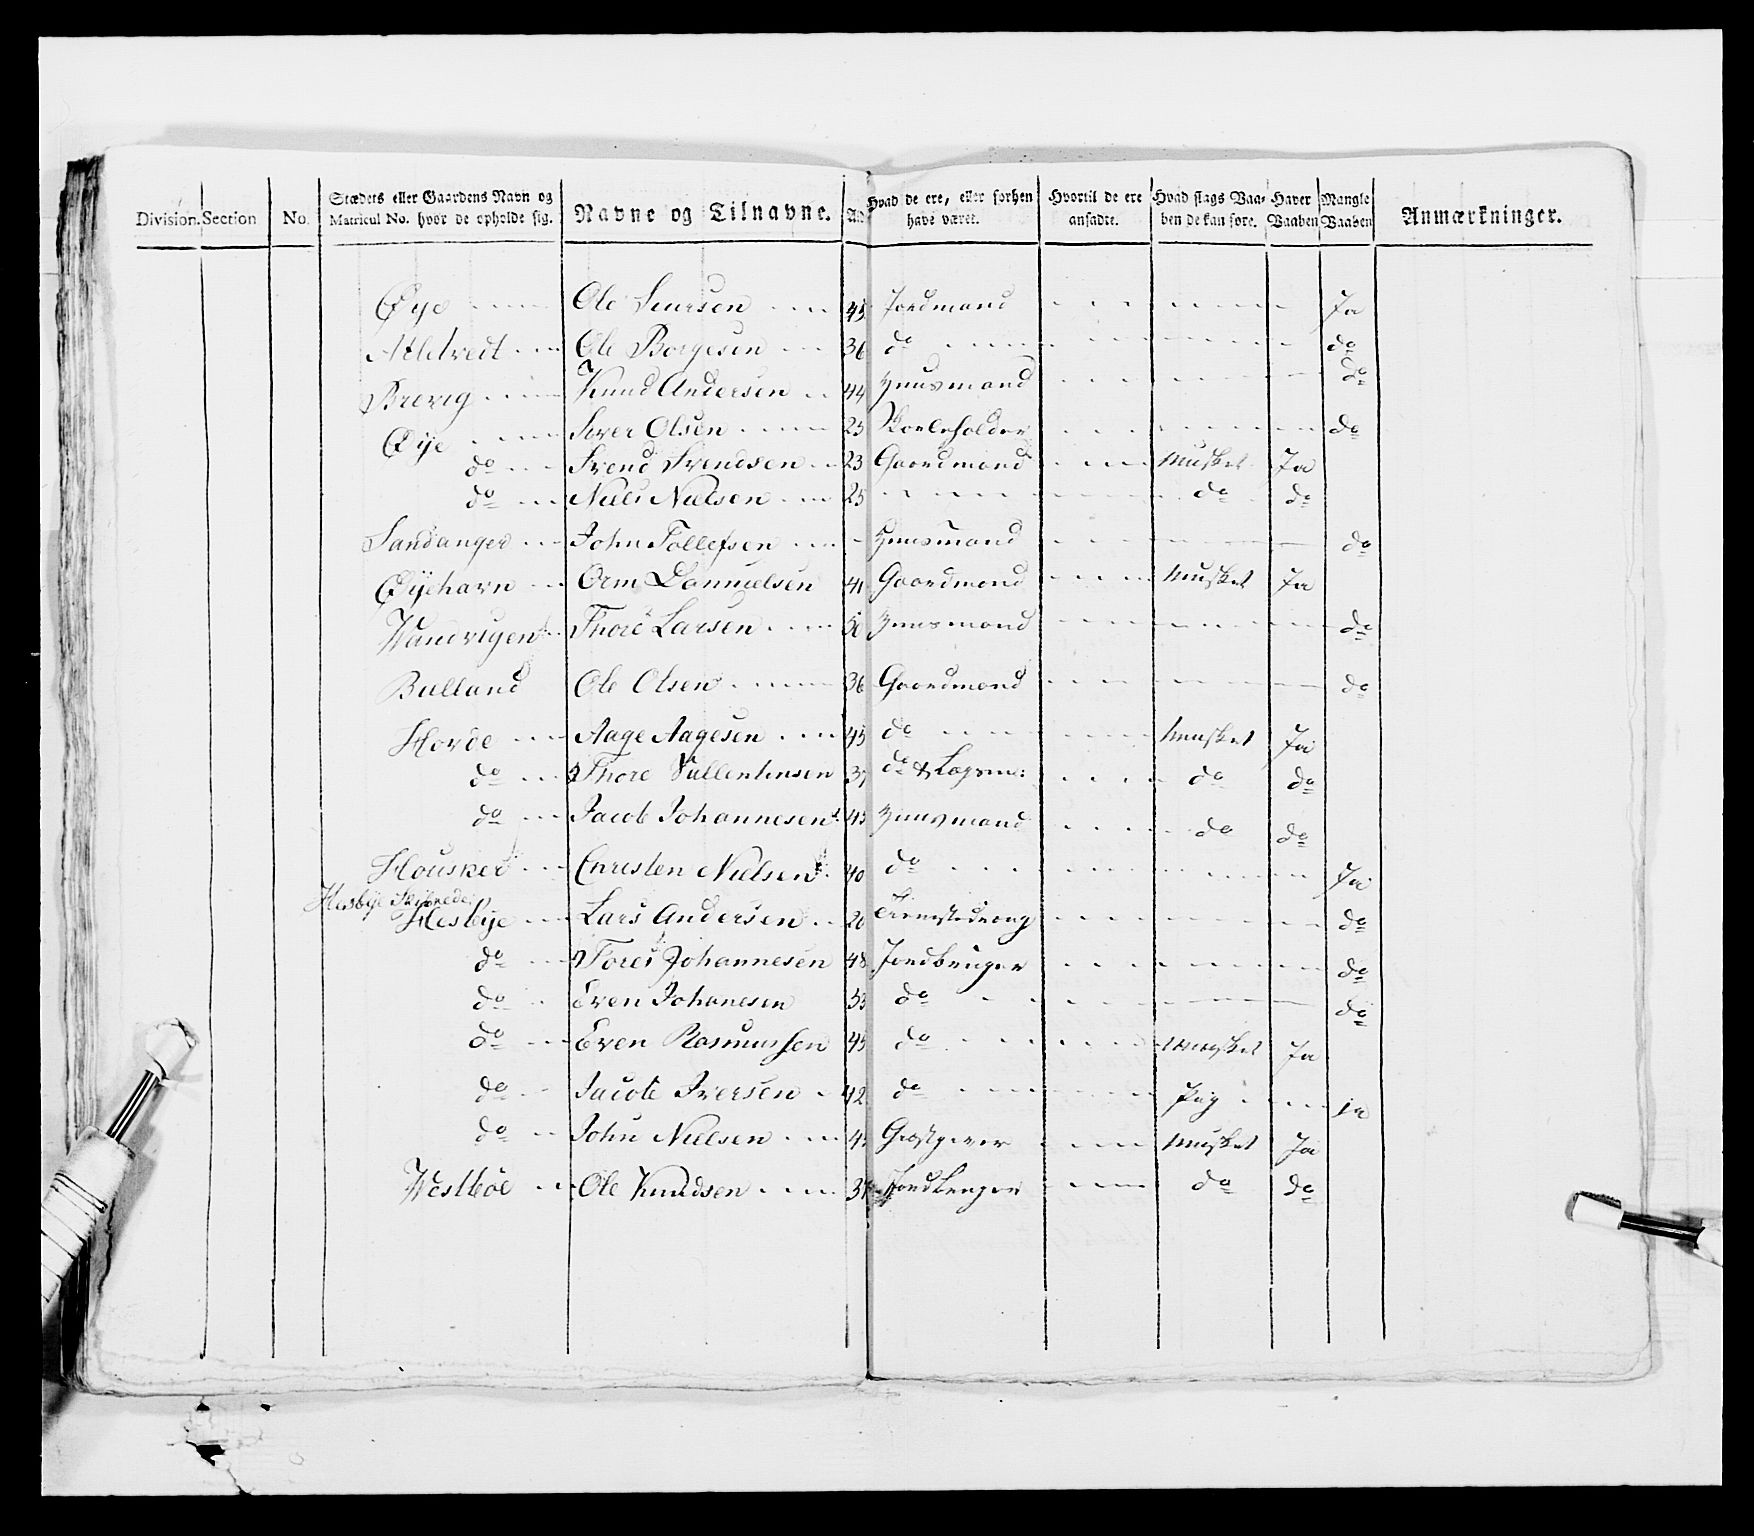 Division. Section No. Stædets eller Gaardens Navn og Matricul No. hvor de opholde sig. Navne og Tilnavne. Ald. Hvad de ere, eller forhen have været. Hvortil de ere ansadte. Hvad slags Vaaben de kan føre. Haver Vaaben Mangle Vaaben Anmærkninger.
Øye Ole 45 Jordmand Ja
Ole Borgesen 36 do do
Brevig Knud Andersen 44 Huusmand do
Øÿe Siver Olsen 25 do
do Svend Svendsen 23 Gaardmand Musket Ja
do Niels Nielsen 25 do do
Sandanger John Tollefsen Huusmand do
Øÿehavn Orm Dannielsen 41 Gaardmand Musket Ja
Wandvigen Thore Larsen 50 Huusmand do
Bulland Ole Olsen 36 Gaardmand do
Hovde Aage Aagesen 45 do Musket Ja
do Thore Vallentinsen 37 do & Logsm: do do
do Jacob Johannesen 45 Huusmand do do
Housker Christen Nielsen 40 do Ja
Hesbÿe Skibrede
Hesbÿe Lars Andersen 20 do
do Tores Johannesen 48 Jordbruger do
do Even Johanesen 53 do do
do Even Rasmussen 45 do Musket Ja
do Jacob Iversen 42 do Pig Ja
do John Nielsen Giæstgiver Musket Ja
Westbøe Ole Knudsen Jordbruger do do